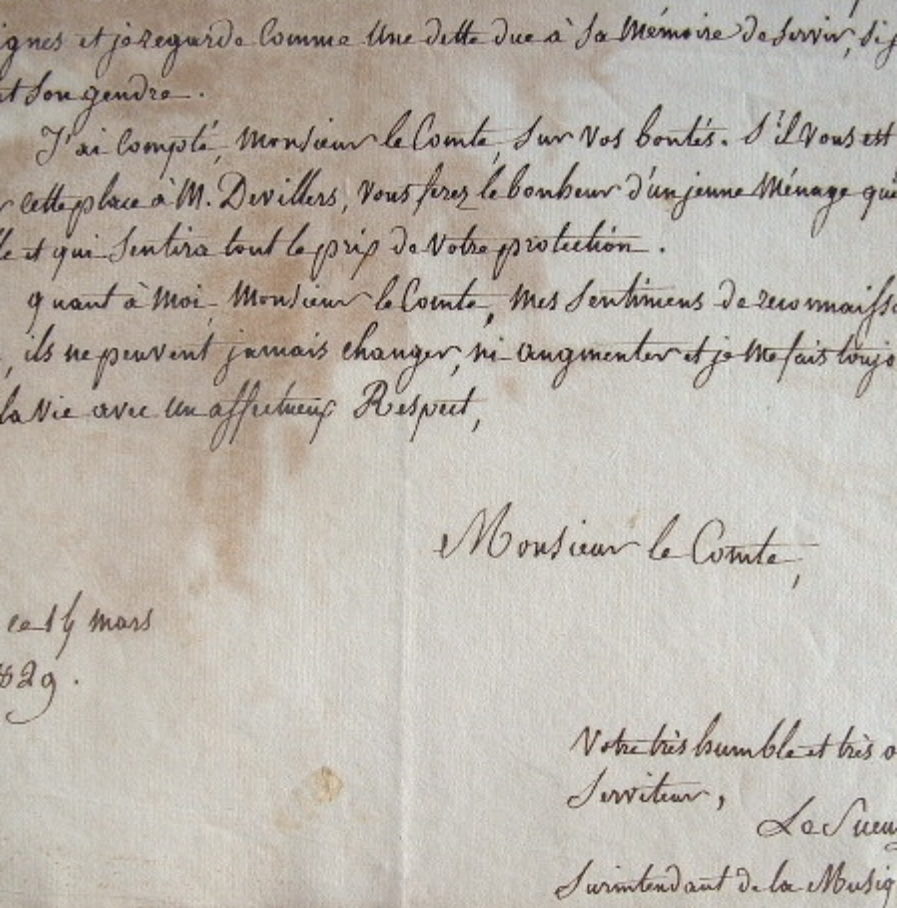 ignes et je regarde Comme Une dette due à Sa Mémoire de Servir, Si j
et Son gendre.
J'ai Compté, Monsieur le Comte, Sur Vos bontés. S'il Vous est
r cette place à M. Devillers, Vous ferez le bonheur d'un jeune Ménage que
le et qui Sentira tout le prix de Votre protection.
quant à Moi, Monsieur le Comte, Mes Sentimens de reconnaissa
, ils ne peuvent jamais changer, ni augmenter et je Me fais toujo
la Vie avec Un affectueux Respect,
Monsieur le Comte,
ce 14 mars
1829.
Votre très humble et très o
Serviteur,
Le Sueu
Surintendant de la Musiq